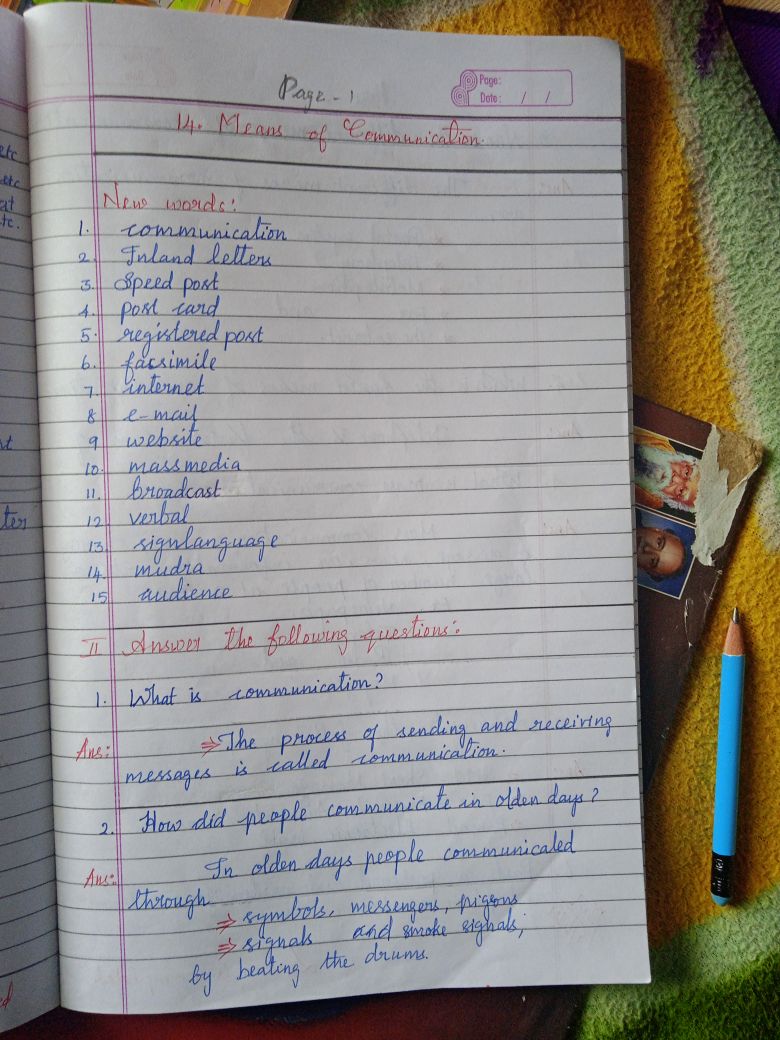 Page - 1
Page:
Date: / /
14. Means of Communication.
New words:
1. communication
2. Inland letters
3. Speed post
4. post card
5. registered post
6. facsimile
7. internet
8 e-mail
9 website
10. massmedia
11. broadcast
12. verbal
13. signlanguage
14. mudra
15 audience
II Answer the following questions:
1. What is communication?
Ans: ⇒ The process of sending and receiving
messages is called communication.
2. How did people communicate in olden days?
Ans: In olden days people communicated
through
⇒ symbols, messengers, pigeons
⇒ signals and smoke signals,
by beating the drums.
etc
etc
at
tc.